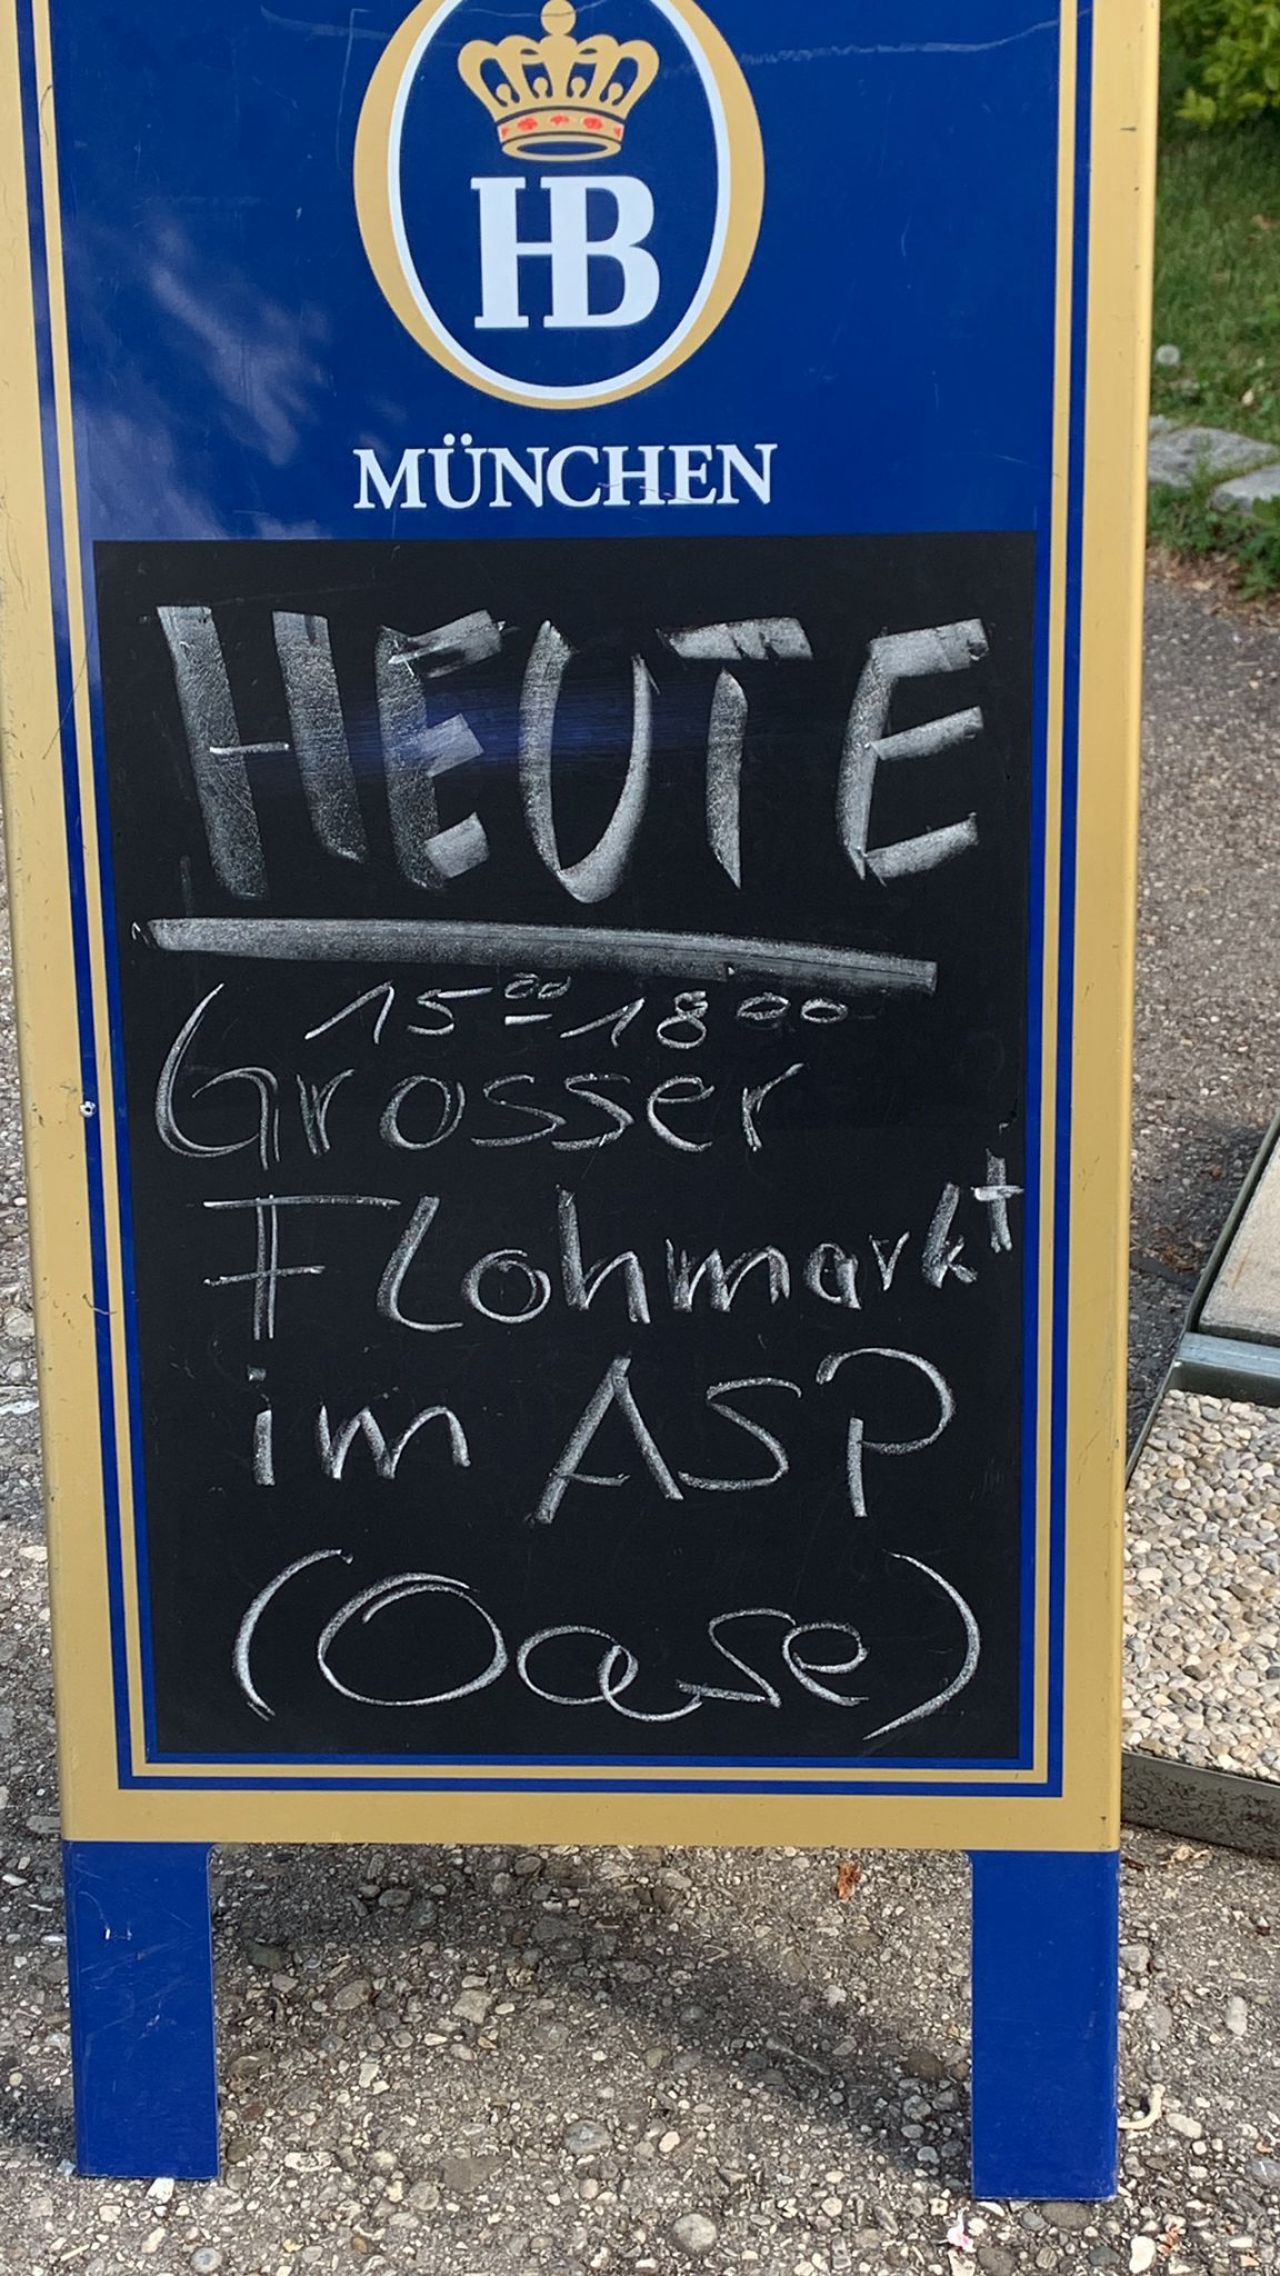 HB
MÜNCHEN
HEUTE
15⁰⁰-18⁰⁰
Grosser
Flohmarkt
im ASP
(Oase)